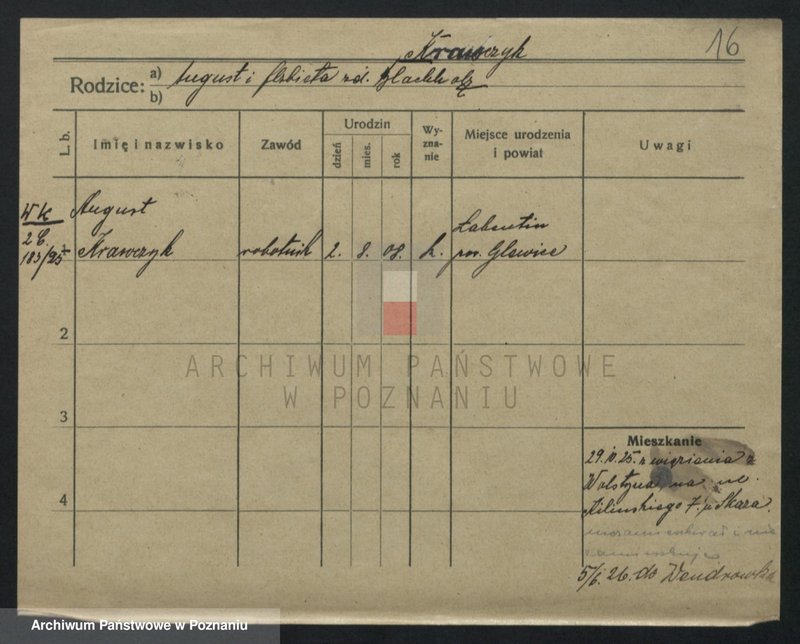 Krawczyk
16
Rodzice: a) August i Elżbieta zd. Blachholz
b)
L. b.
Imię i nazwisko
Zawód
Urodzin
dzień
mies.
rok
Wy-
zna-
nie
Miejsce urodzenia
i powiat
Uwagi
WK
183/25
1
August
Krawczyk
robotnik
2. 8. 08.
k.
pow. Glewice
2
3
4
ARCHIWUM PAŃSTWOWE
W POZNANIU
Mieszkanie
29. IV. 25. z więzienia z
Wolsztyna na ul.
Kilińskiego 7. u Skaza
5/6. 26. do Wendrowka
Archiwum Państwowe w Poznaniu